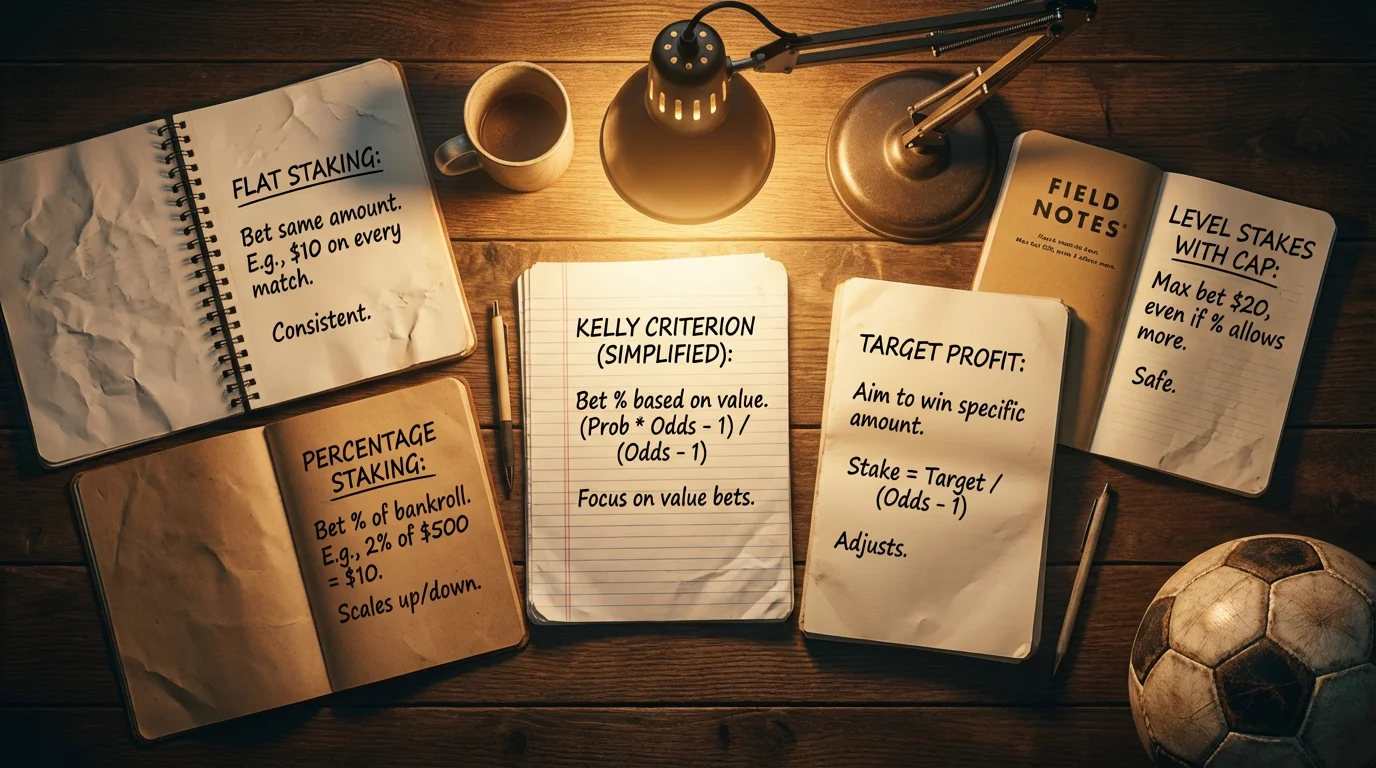 FLAT STAKING:
Bet same amount.
E.g., $10 on every
match.
Consistent.
PERCENTAGE
STAKING:
Bet % of bankroll.
E.g., 2% of $500
= $10.
Scales up/down.
KELLY CRITERION
(SIMPLIFIED):
Bet % based on value.
(Prob * Odds - 1) /
(Odds - 1)
Focus on value bets.
TARGET PROFIT:
Aim to win specific
amount.
Stake = Target /
(Odds - 1)
Adjusts.
FIELD
NOTES
LEVEL STAKES
WITH CAP:
Max bet $20,
even if % allows
more.
Safe.